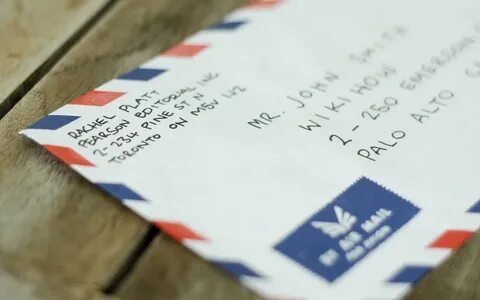 RACHEL PLATT
PEARSON EDITORIAL INC
2-234 PINE ST N
TORONTO ON M5V 1V2
MR. JOHN SMITH
WIKIHOW
2-250 EMERSON
PALO ALTO CA
BY AIR MAIL
PAR AVION